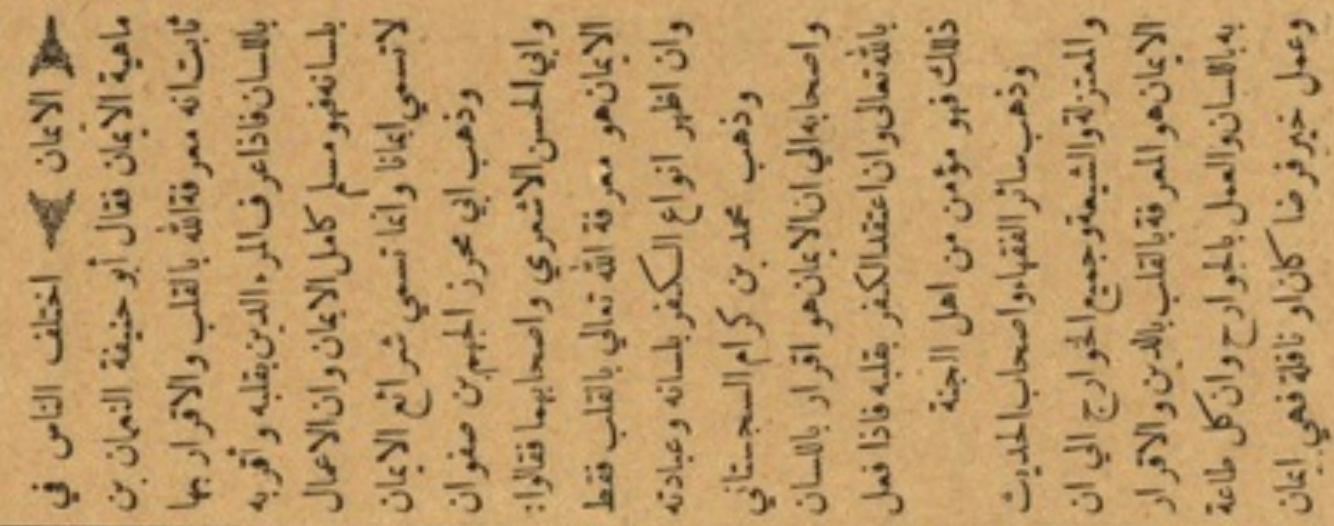 ﴿ الايمان ﴾ اختلف الناس في
ماهية الايمان فقال أبو حنيفة النعمان بن
ثابت انه معرفة الله بالقلب والاقرار بها
باللسان فاذا عرف المرء الدين بقلبه وأقر به
بلسانه فهو مسلم كامل الايمان وان الاعمال
لا تسمي ايمانا وانما تسمي شرائع الايمان
وذهب ابي محرز الجهم بن صفوان
وابي الحسن الاشعري واصحابهما فقالوا:
الايمان هو معرفة الله تعالي بالقلب فقط
وان اظهر انواع الكفر بلسانه وعبادته
وذهب محمد بن كرام السجستاني
واصحابه الي ان الايمان هو اقرار باللسان
بالله تعالى وان اعتقد الكفر بقلبه فاذا فعل
ذلك فهو مؤمن من اهل الجنة
وذهب سائر الفقهاء واصحاب الحديث
والمعتزلة والشيعة وجميع الخوارج الي ان
الايمان هو المعرفة بالقلب بالدين والاقرار
به باللسان والعمل بالجوارح وان كل طاعة
وعمل خير فرضا كان او نافلة فهي ايمان